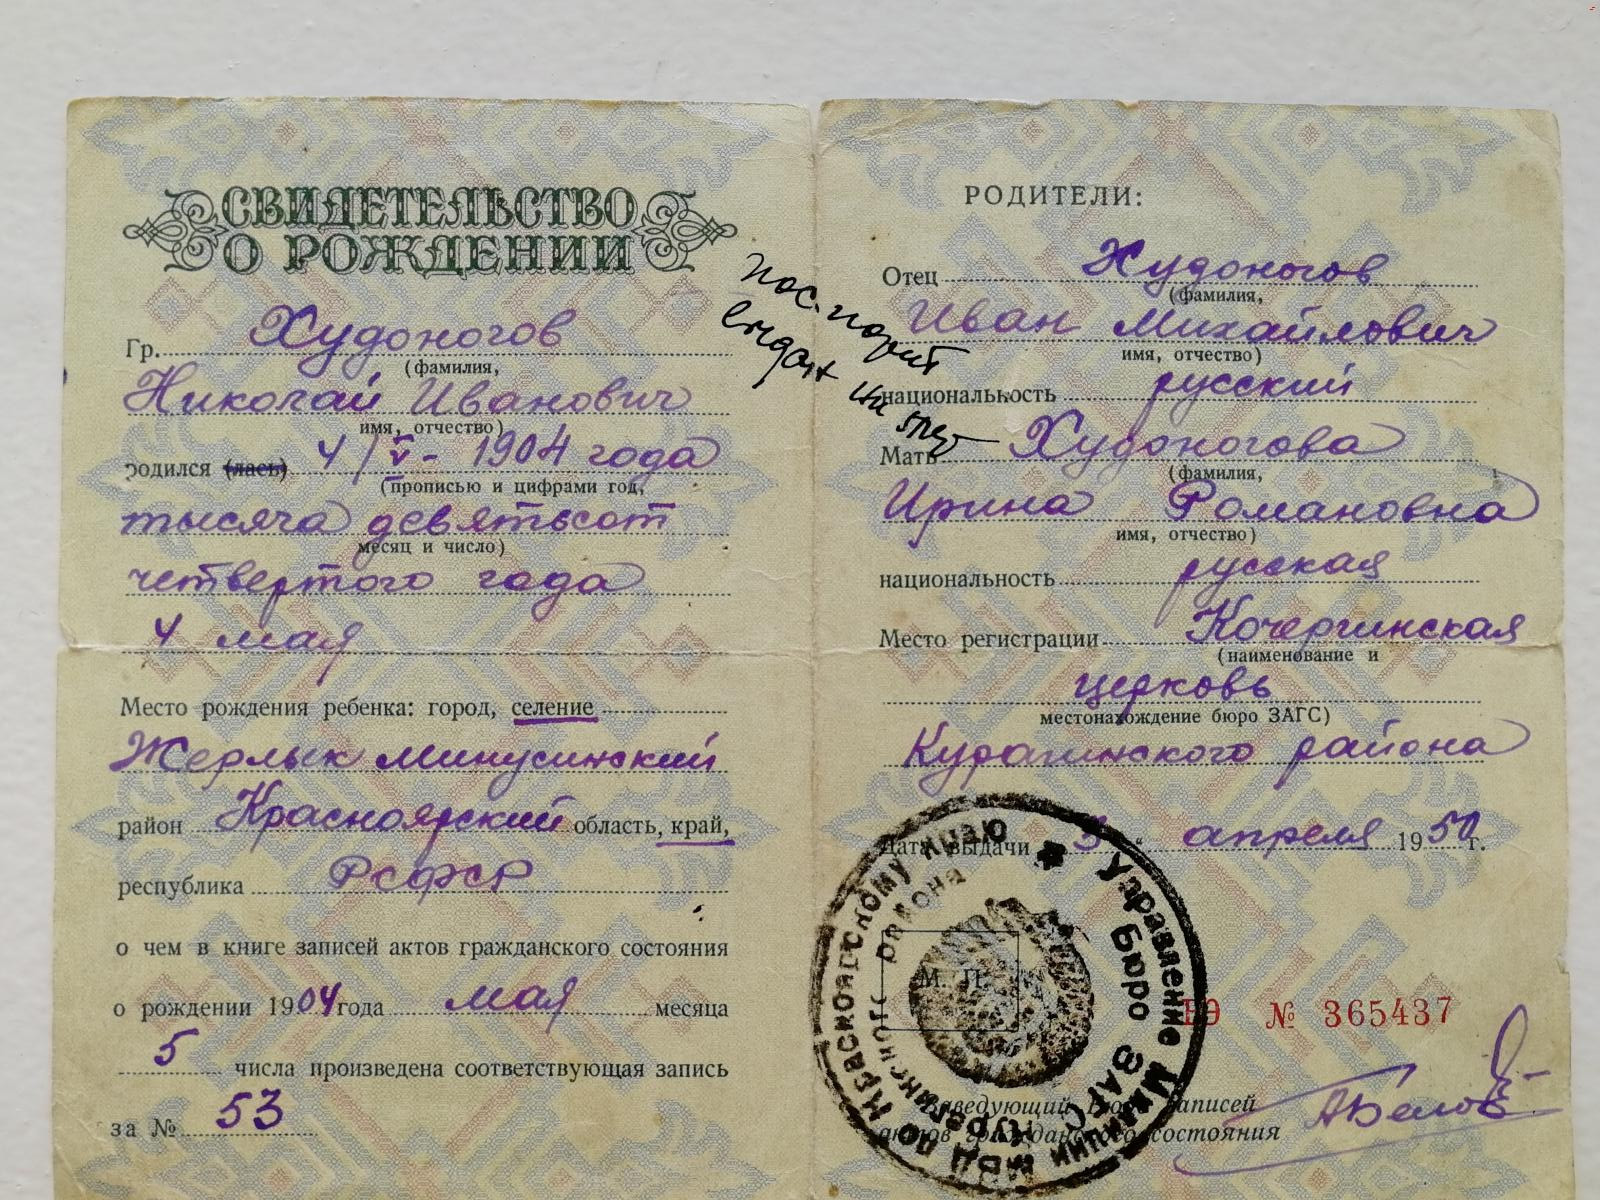 СВИДЕТЕЛЬСТВО
О РОЖДЕНИИ
Гр. Худоногов
(фамилия,
Николай Иванович
имя, отчество)
родился (лась) 4/V- 1904 года
(прописью и цифрами год,
тысяча девятьсот
месяц и число)
четвертого года
4 мая
Место рождения ребенка: город, селение
Жерлык Минусинский
район Красноярский область, край,
республика РСФСР
о чем в книге записей актов гражданского состояния
о рождении 1904 года мая месяца
5 числа произведена соответствующая запись
за № 53
паспорт
выдан на
РОДИТЕЛИ:
Отец Худоногов
(фамилия,
Иван Михайлович
имя, отчество)
национальность русский
Мать Худоногова
(фамилия,
Ирина Романовна
имя, отчество)
национальность русская
Место регистрации Кочергинская
(наименование и
церковь
местонахождение бюро ЗАГС)
Курагинского района
Дата выдачи 5 " апреля 1950 г.
М. П.
Управление Милиции МВД по Красноярскому краю
Бюро ЗАГС Курагинского района
№ 365437
Заведующий Бюро записей
актов гражданского состояния
АБелов